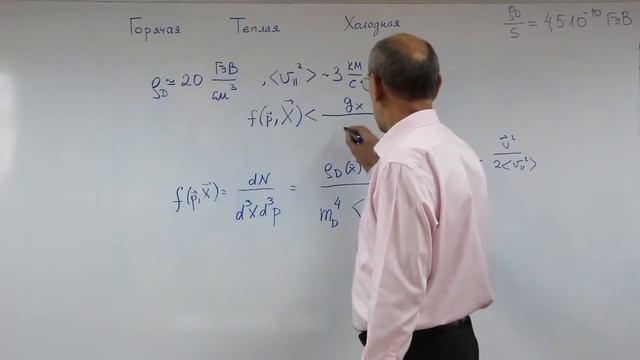 Горячая Теплая Холодная
ρ_D / S = 4,5 10^-10 ГэВ
ρ_D ≃ 20 ГэВ / см^3 , <v_||^2> ~ 3 км / с
f(p⃗, X⃗) < g_x
f(p⃗, X⃗) = dN / d^3X d^3p = ρ_D(x⃗) / m_D^4 < - v⃗^2 / 2<v_||^2>